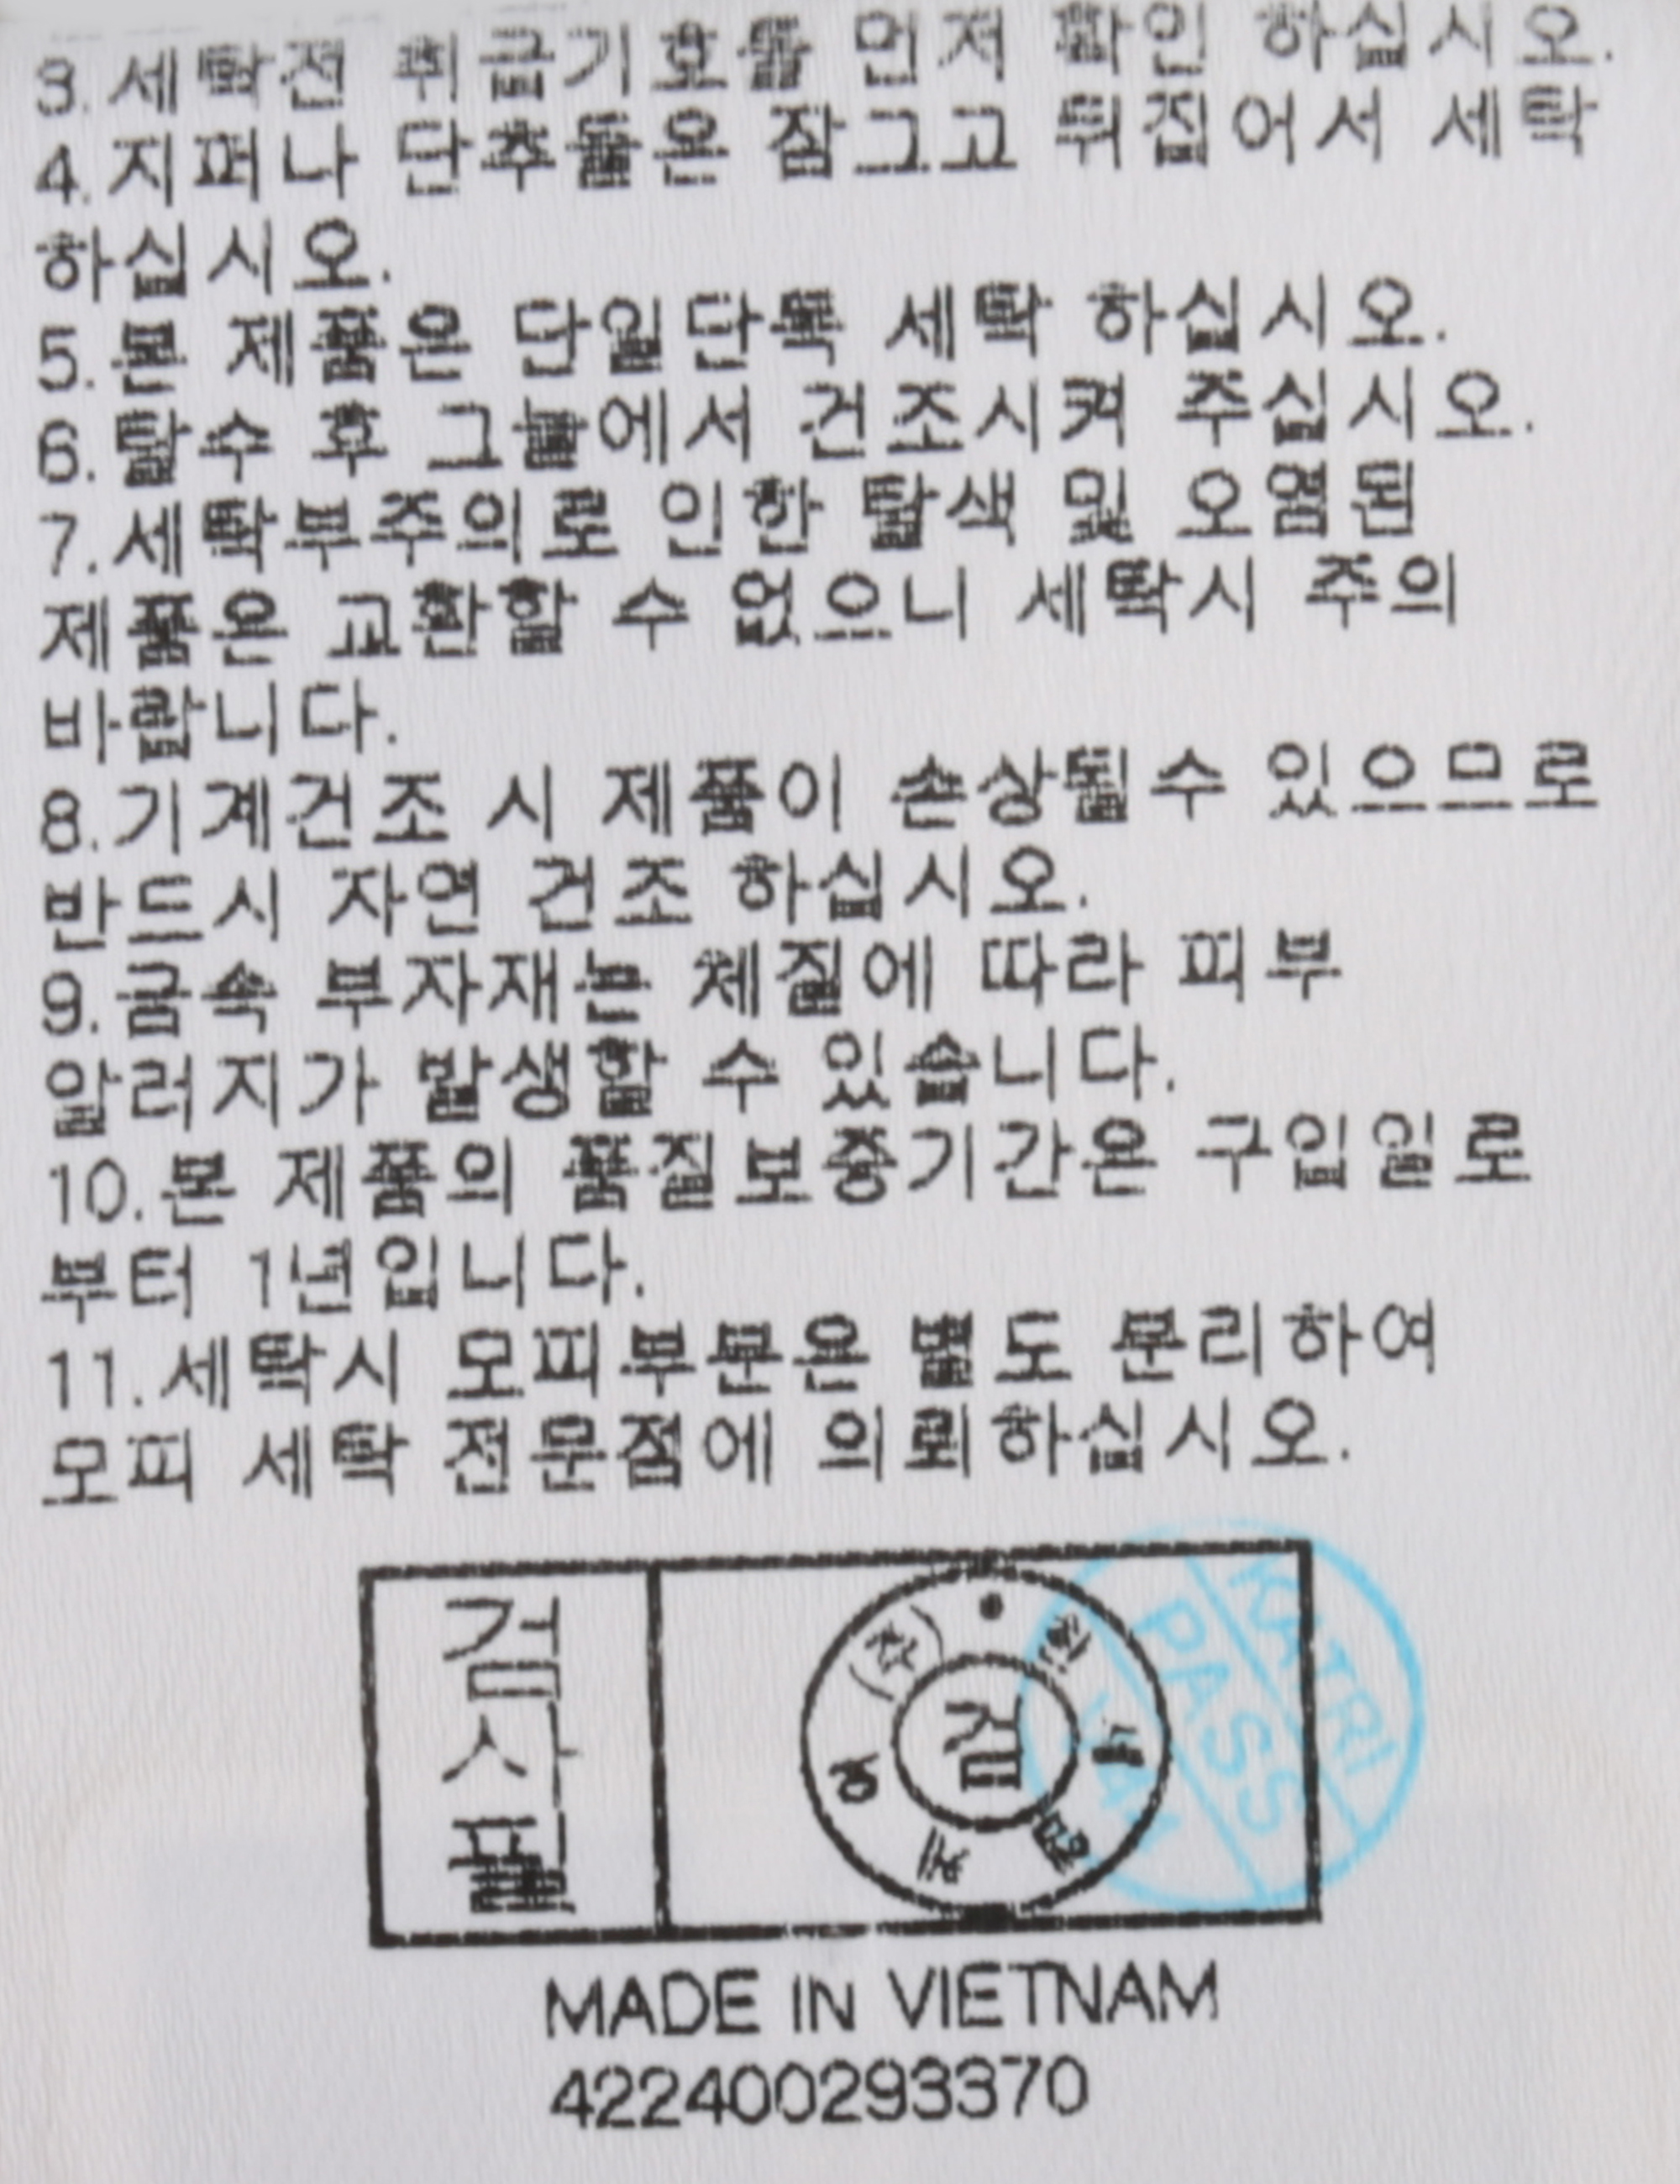 3.세탁전 취급기호를 먼저 확인 하십시오.
4.지퍼나 단추들은 잠그고 뒤집어서 세탁
하십시오.
5.본 제품은 단일단독 세탁 하십시오.
6.탈수 후 그늘에서 건조시켜 주십시오.
7.세탁부주의로 인한 탈색 및 오염된
제품은 교환할 수 없으니 세탁시 주의
바랍니다.
8.기계건조 시 제품이 손상될수 있으므로
반드시 자연 건조 하십시오.
9.금속 부자재는 체질에 따라 피부
알러지가 발생할 수 있습니다.
10.본 제품의 품질보증기간은 구입일로
부터 1년입니다.
11.세탁시 모피부분은 별도 분리하여
모피 세탁 전문점에 의뢰하십시오.
검사필
검
KATRI
PASS
MADE IN VIETNAM
422400293370